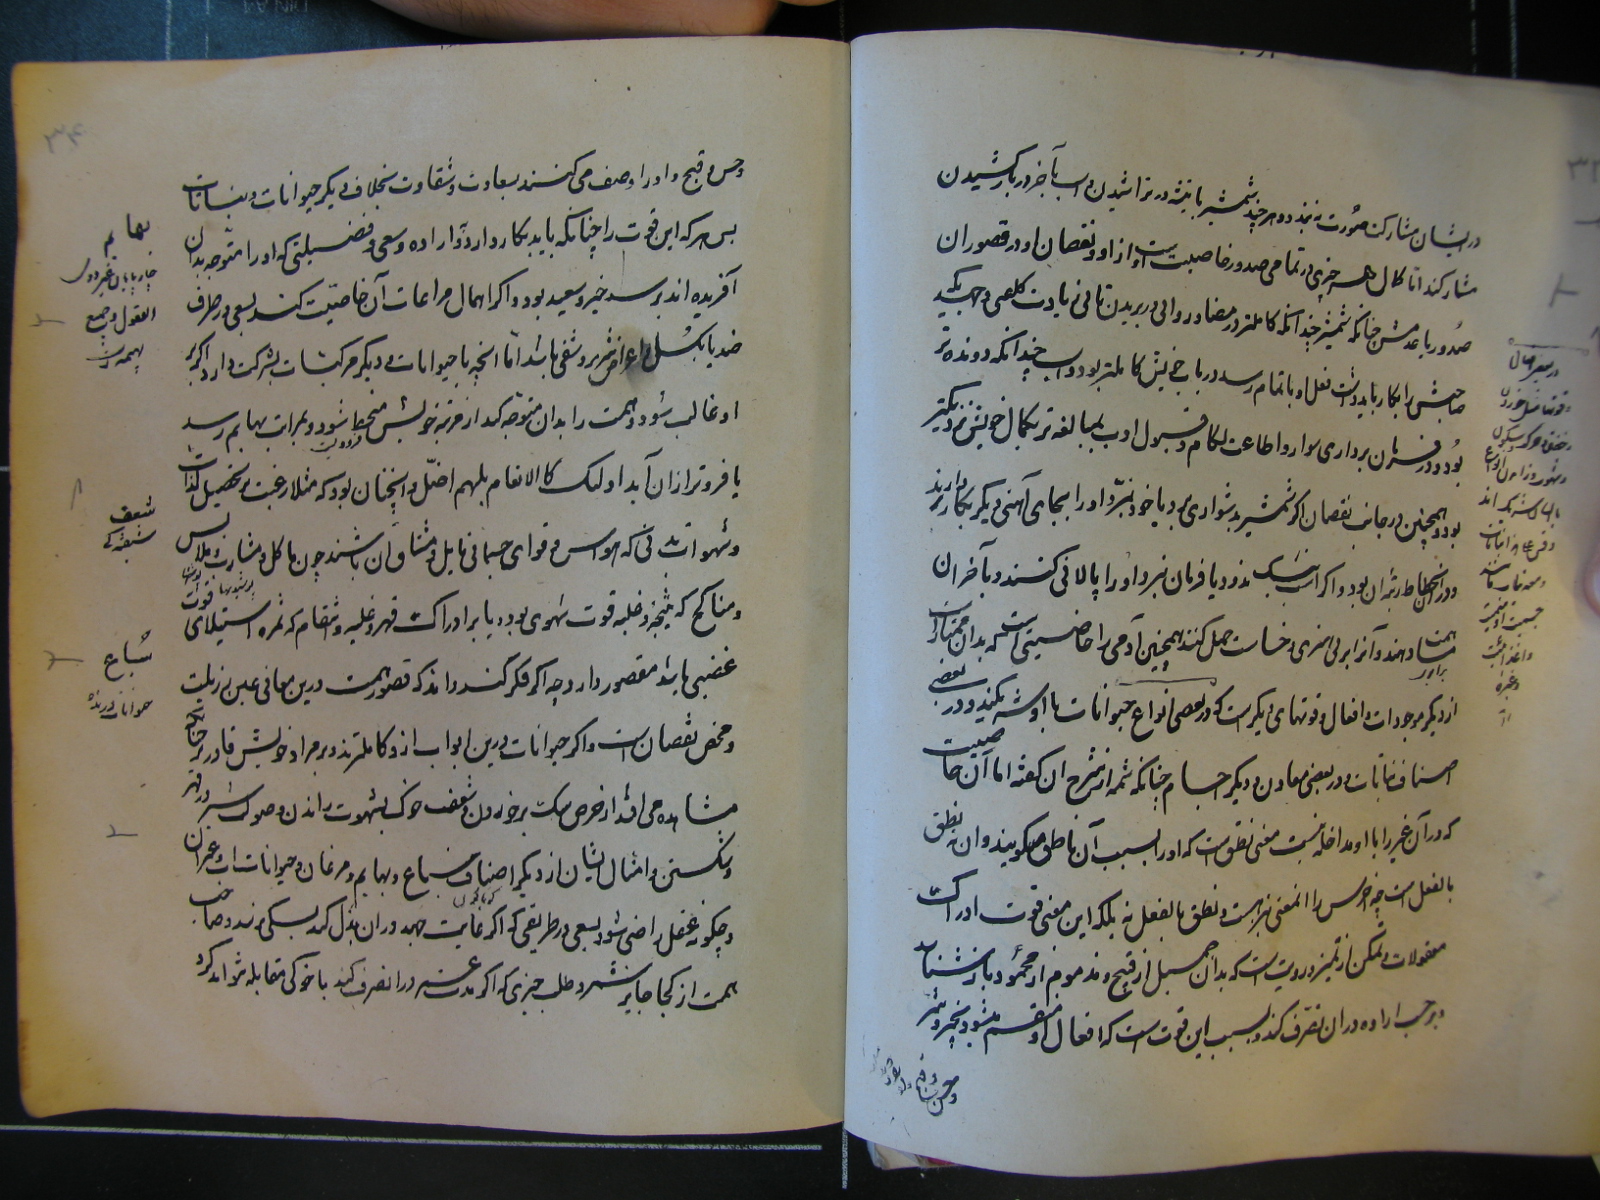 در ایشان مشارکت صورت نبندد و هر چند شمشیر با تیشه در تراشیدن و اسب با خر در بار کشیدن
مشارکند اما کمال هر چیزی در تمامی صدور خاصیت اوست ازو و نقصان او در قصور آن
صدور یا عدمش چنانکه شمشیر چندانکه کاملتر در مضا و روانی در بریدن تا بی زیادت کلفتی و جهدی که
صاحبش را بکار باید داشت فعل او باتمام رسد در باب خویش کاملتر بود و اسب چندانکه دونده تر
بود و در فرمان برداری سوار و اطاعت لگام و قبول ادب بمبالغه تر بکمال خویش نزدیکتر
بود و همچنین در جانب نقصان اگر شمشیر بدشواری برد یا خود نبرد او را بجای آهنی دیگر بکار دارند
و در آن انحطاط رتبه آن بود و اگر اسب نیک ندود یا فرمان نبرد او را پالانی کنند و با خران
مساوات دهند و آنرا بر بی هنری و خساست حمل کنند همچنین آدمی را خاصیتی است که بدان ممتاز است
از دیگر موجودات و افعال و قوتهای دیگر است که در بعضی انواع حیوانات با او شریکند و در بعضی
اصناف نباتات و در بعضی معادن و دیگر اجسام چنانکه شمه از شرح آن گفته اما آن خاصیت
که در آن غیر را با او مداخله نیست معنی نطق است که او را بسبب آن ناطق میگویند و آن نه نطق
بالفعل است چه اخرس را این معنی نیز هست و نطق بالفعل نه بلکه این معنی قوت ادراک
معقولات و تمکن از تمیز و رویت است که بدان جمیل از قبیح و مذموم از محمود باز شناسد
و بر حسب اراده در آن تصرف کند و بسبب این قوت است که افعال او منقسم میشود بخیر و شر
و حسن و قبح
و حسن و قبح و او را وصف می کنند بسعادت و شقاوت بخلاف دیگر حیوانات و نباتات
پس هر که این قوت را چنانکه باید بکار دارد و باراده و سعی و فضیلتی که او را متوجه بدان
آفریده اند برسد خیر و سعید بود و اگر اهمال مراعات آن خاصیت کند بسعی در طرف
ضد یا بکسل و اعراض شریر و شقی باشد اما آنچه با حیوانات و دیگر مرکبات بشرکت دارد اگر بر
او غالب شود و همت را بدان متوجه کند از مرتبه خویش منحط شود و بمراتب بهایم رسد
یا فروتر از آن آید اولئک کالانعام بل هم اضل و آنچنان بود که مثلا رغبت بر تحصیل لذات
و شهوات بدنی که حواس و قوای جسمانی مایل و مشتاق آن باشند چون ماکل و مشارب و ملابس
و مناکح که نتیجه غلبه قوت شهوی بود یا بر ادراک قهر و غلبه و انتقام که ثمره استیلای
قوت
غضبی باشد مقصور دارد چه اگر فکر کند داند که قصور همت درین معانی عین رذیلت
و محض نقصان است و اگر حیوانات درین ابواب ازو کاملترند و بر مراد خویش قادرتر چنانکه
مشاهده می افتد از حرص سگ بر خوردن و شعف خوک بشهوت راندن و صولت شیر در قهر
و شکستن و امثال ایشان از دیگر اصناف سباع و بهایم و مرغان و حیوانات آب و غیر آن
و چگونه عاقل راضی شود بسعی در طریقی که اگر غایت جهد در آن بذل کند بسگی نرسد و صاحب
همت از کجا جایز شمرد طلب چیزی که اگر مدت عمر در آن صرف کند با خوکی مقابله نتواند کرد
بهایم
چارپایان غیر ذوی
العقول و جمیع
بهیمه است
شعف
شیفتگی
سباع
حیوانات درنده
۳۴